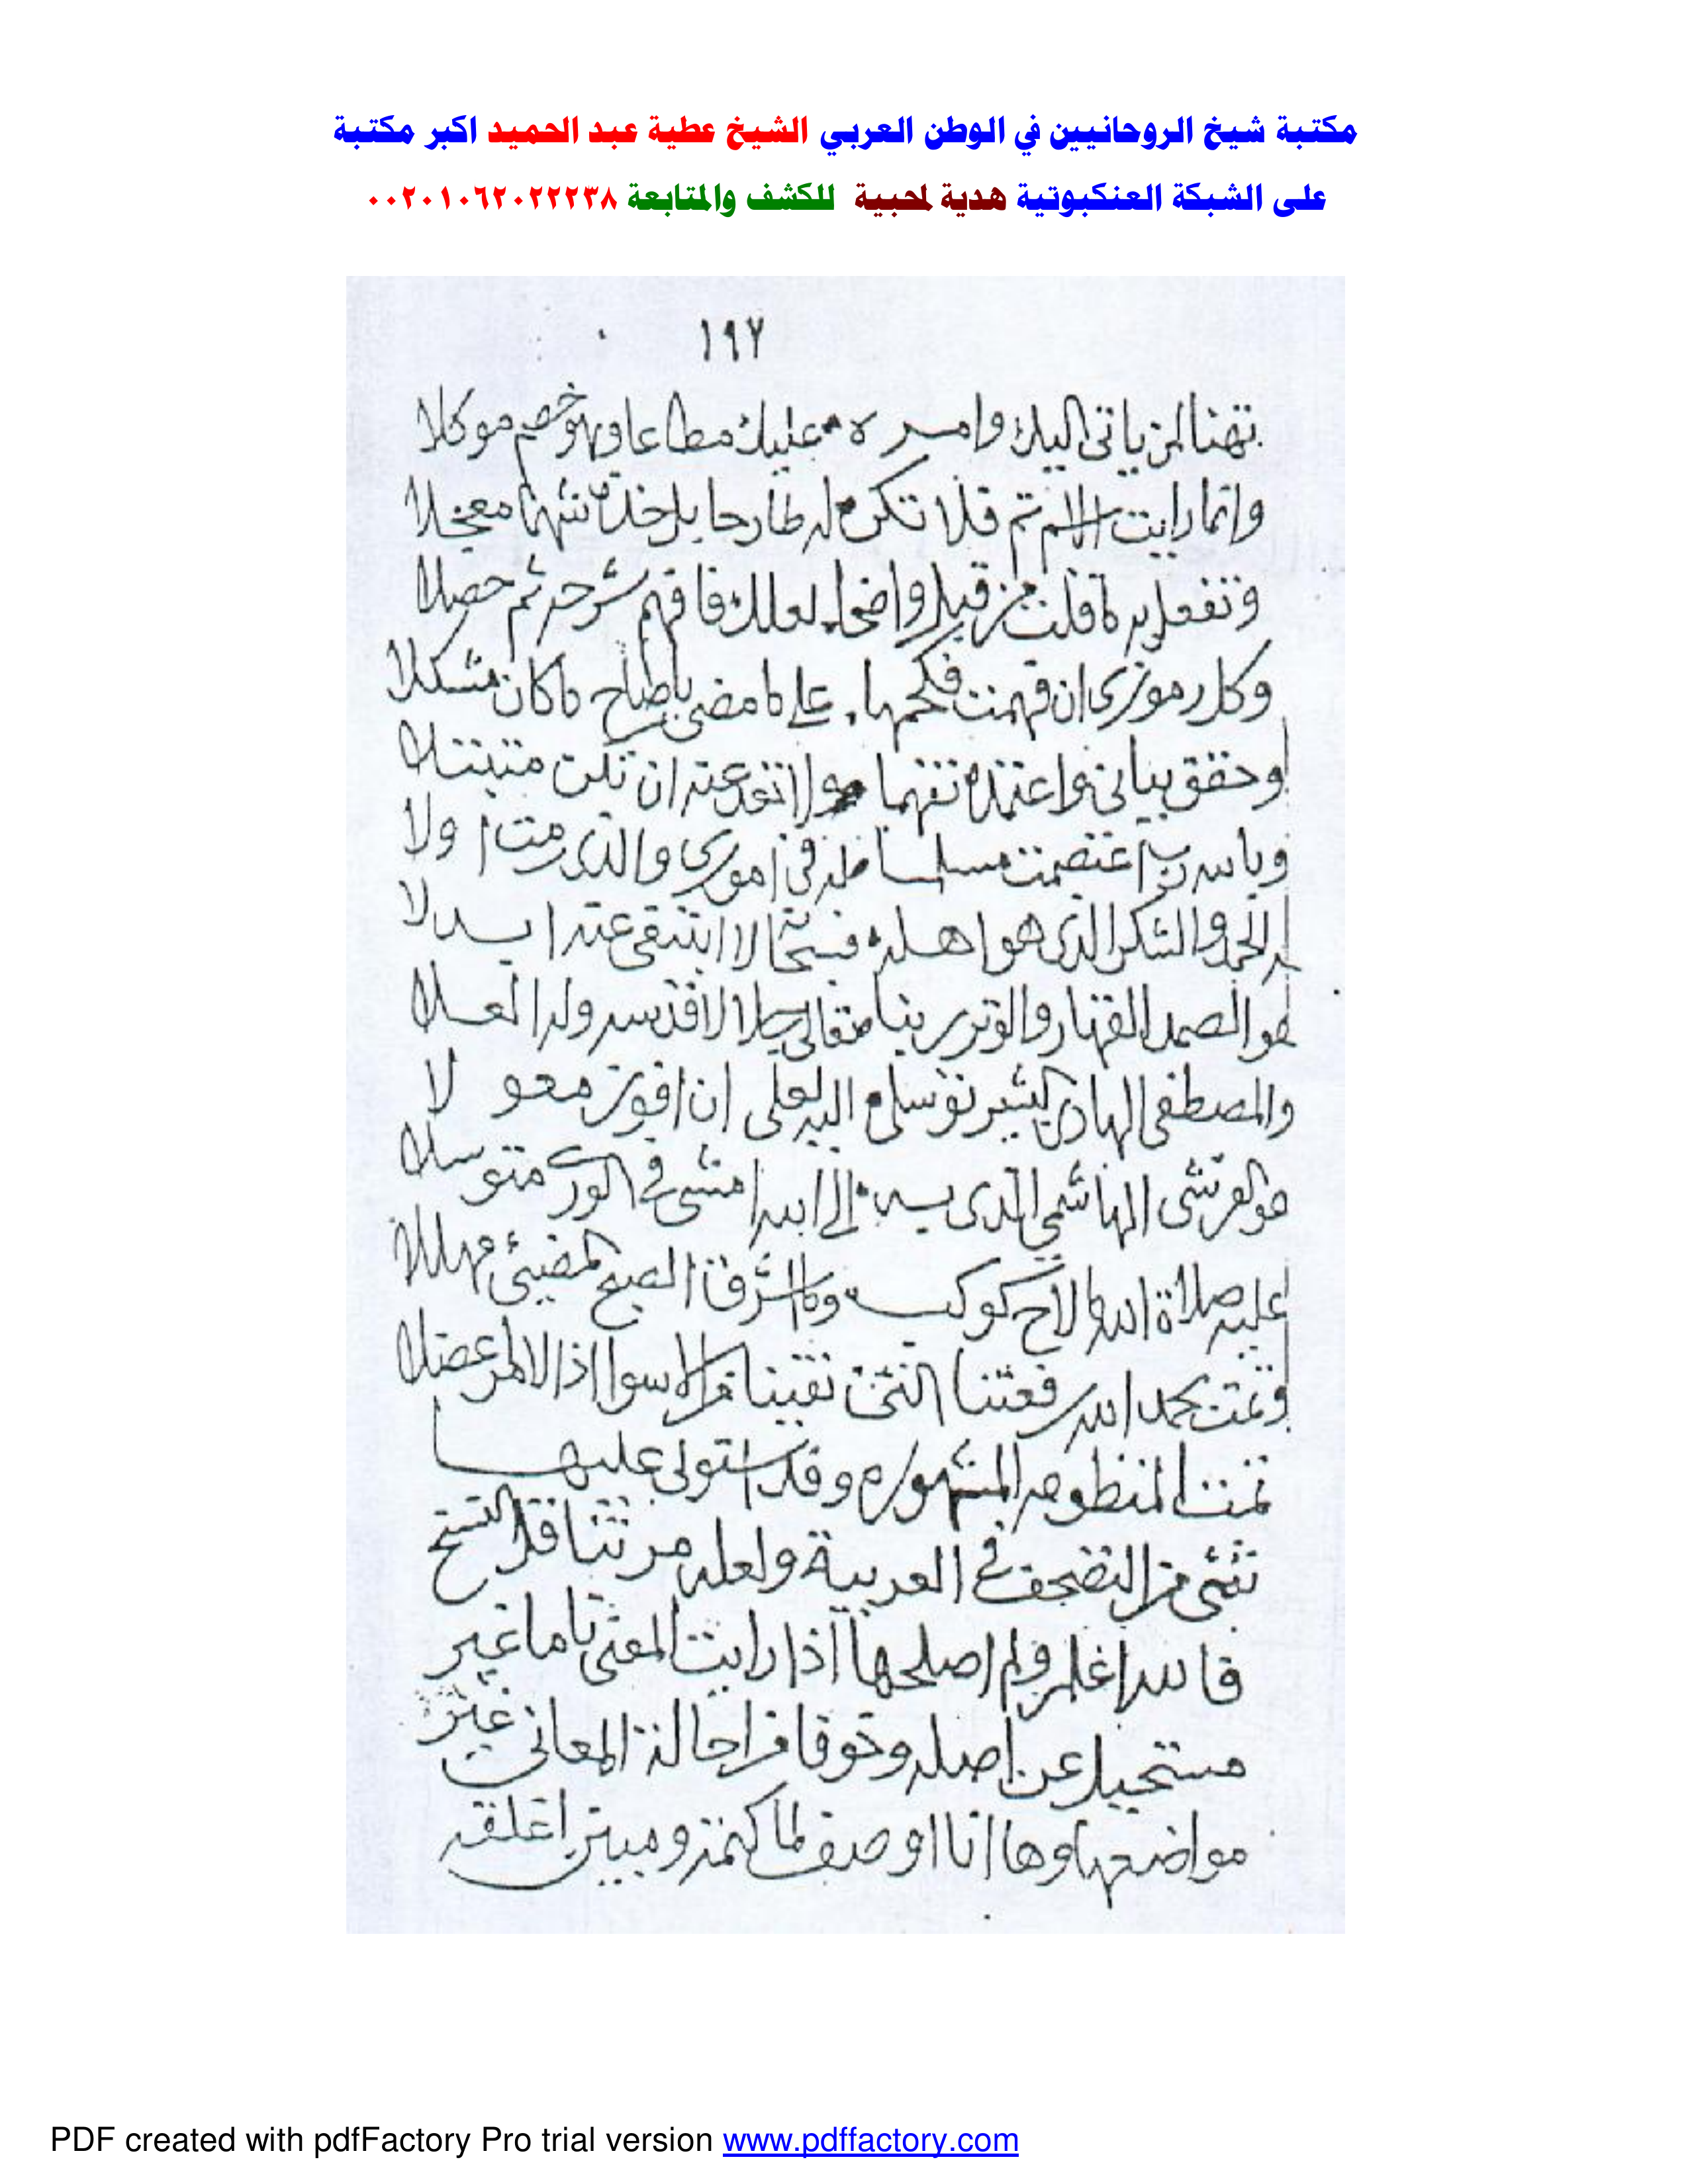 مكتبة شيخ الروحانيين في الوطن العربي الشيخ عطية عبد الحميد اكبر مكتبة
على الشبكة العنكبوتية هدية لمحبية للكشف والمتابعة ٠٠٢٠١٠٦٢٠٢٢٢٣٨
١٩٧
ياتى اليك وامسره عليك مطاعا وهو خصم موكلا
رايت الاسم تم فلا تكن له طارحا بل خذه معجلا
وتفعل به ما قلت من قبل واضحا لعلك فافهم شرحه ثم حصلا
وكل رموزى ان فهمت فحكمها على ما مضى باصلاح ما كان مشكلا
وحقق بيانى واعتمده تفهما ولا تعد عنه ان تكن
وبالله ربى اعتصمت مسلما له فى امورى والذى رمت اولا
له الحمد والشكر الذى هو اهله فسبحانه لا ابتغى عنه ابدلا
هو الصمد القهار والوتر ربنا تعالى له العلا
والمصطفى الهادى البشير توسلى اليه لعلى ان افوز معولا
هو القرشى الهاشمى الذى به الى الله امشى فى الورى متوسلا
عليه صلاة الله ما لاح كوكب وما اشرق الصبح المضيئ مهللا
وتمت بحمد الله التى تقينا من الاسوا اذا الامر عضلا
تمت المنظومه المشهوره وقد استولى عليها
شئ من التصحف فى العربية ولعله من تناقل النسخ
فالله اعلم ولم اصلحها اذا رايت المعنى تاما غير
مستحيل عن اصله وخوفا من احالة المعانى عن
مواضعها وها انا اوصف لما كتمته ومبين اغلقه
PDF created with pdfFactory Pro trial version www.pdffactory.com